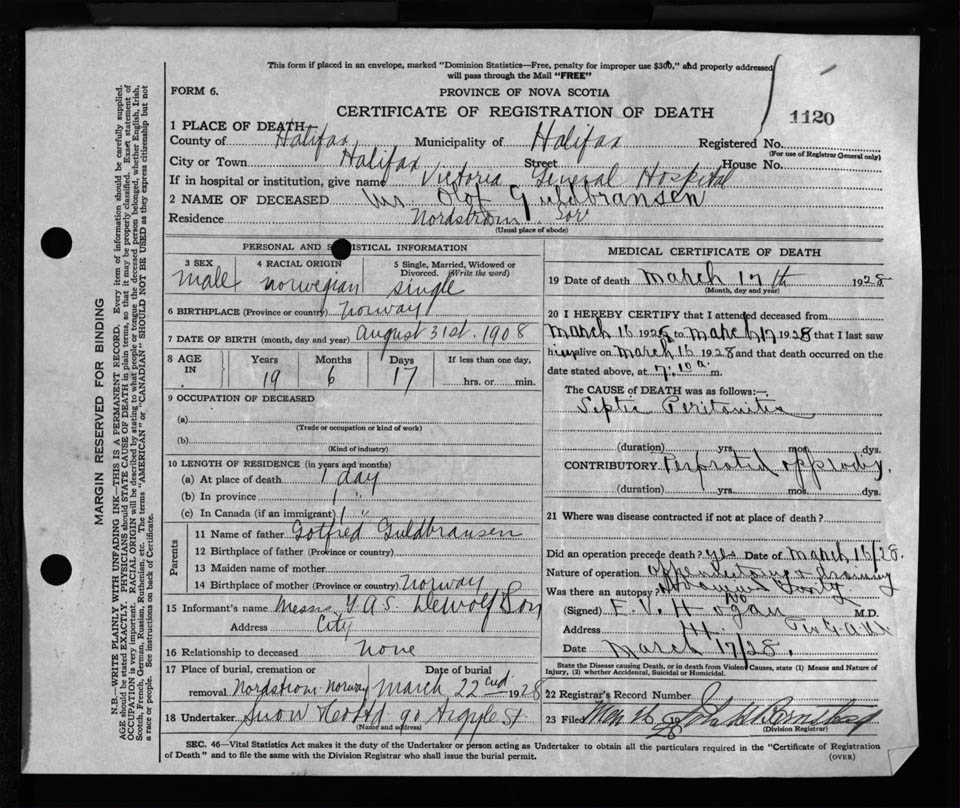 This form if placed in an envelope, marked "Dominion Statistics—Free, penalty for improper use $300," and properly addressed
will pass through the Mail "FREE"
FORM 6.
PROVINCE OF NOVA SCOTIA
CERTIFICATE OF REGISTRATION OF DEATH
1120
1 PLACE OF DEATH
County of Halifax Municipality of Halifax Registered No.
(For use of Registrar General only)
City or Town Halifax Street House No.
If in hospital or institution, give name Victoria General Hospital
2 NAME OF DECEASED Mr. Olof Guldbransen
Residence Nordstrom Nor
(Usual place of abode)
PERSONAL AND STATISTICAL INFORMATION
3 SEX
male
4 RACIAL ORIGIN
norwegian
5 Single, Married, Widowed or
Divorced. (Write the word)
single
6 BIRTHPLACE (Province or country) norway
7 DATE OF BIRTH (month, day and year) August 31st. 1908
8 AGE IN
Years Months Days If less than one day,
19 6 17 hrs. or min.
9 OCCUPATION OF DECEASED
(a)
(Trade or occupation or kind of work)
(b)
(Kind of industry)
10 LENGTH OF RESIDENCE (in years and months)
(a) At place of death 1 day
(b) In province 1 "
(c) In Canada (if an immigrant) 1 "
Parents
11 Name of father Gotfred Guldbransen
12 Birthplace of father (Province or country)
13 Maiden name of mother
14 Birthplace of mother (Province or country) norway
15 Informant's name Messrs T.A.S. Dewolf Son
Address City
16 Relationship to deceased none
17 Place of burial, cremation or Date of burial
removal Nordstrom Norway March 22nd 1928
18 Undertaker Snow 90 Argyle St.
(Name and address)
MEDICAL CERTIFICATE OF DEATH
19 Date of death March 17th 1928
(Month, day and year)
20 I HEREBY CERTIFY that I attended deceased from
March 16 1928 to March 17 1928 that I last saw
him alive on March 16 1928 and that death occurred on
date stated above, at 7.10 a. m.
The CAUSE of DEATH was as follows:—
Septic Peritonitis
(duration) yrs. mos. dys.
CONTRIBUTORY Perforated
(duration) yrs. mos. dys.
21 Where was disease contracted if not at place of death?
Did an operation precede death? yes Date of March 16/28.
Nature of operation
Was there an autopsy?
(Signed) E. V. Hogan M.D.
Address
Date March 17/28.
State the Disease causing Death, or in death from Violent Causes, state (1) Means and Nature of
Injury, (2) whether Accidental, Suicidal or Homicidal.
22 Registrar's Record Number
23 Filed Mar 26 1928
(Division Registrar)
SEC. 46—Vital Statistics Act makes it the duty of the Undertaker or person acting as Undertaker to obtain all the particulars required in the "Certificate of Registration
of Death" and to file the same with the Division Registrar who shall issue the burial permit.
(OVER)
MARGIN RESERVED FOR BINDING
N.B.—WRITE PLAINLY WITH UNFADING INK—THIS IS A PERMANENT RECORD. Every item of information should be carefully supplied.
AGE should be stated EXACTLY. PHYSICIANS should STATE CAUSE OF DEATH in plain terms, so that it may be properly classified. Exact statement of
OCCUPATION is very important. RACIAL ORIGIN will be described by stating to what people or tongue the deceased person belonged, whether English, Irish,
Scotch, French, German, Russian, Ruthenian, etc. The terms "AMERICAN" or "CANADIAN" SHOULD NOT BE USED as they express citizenship but not
a race or people. See instructions on back of Certificate.